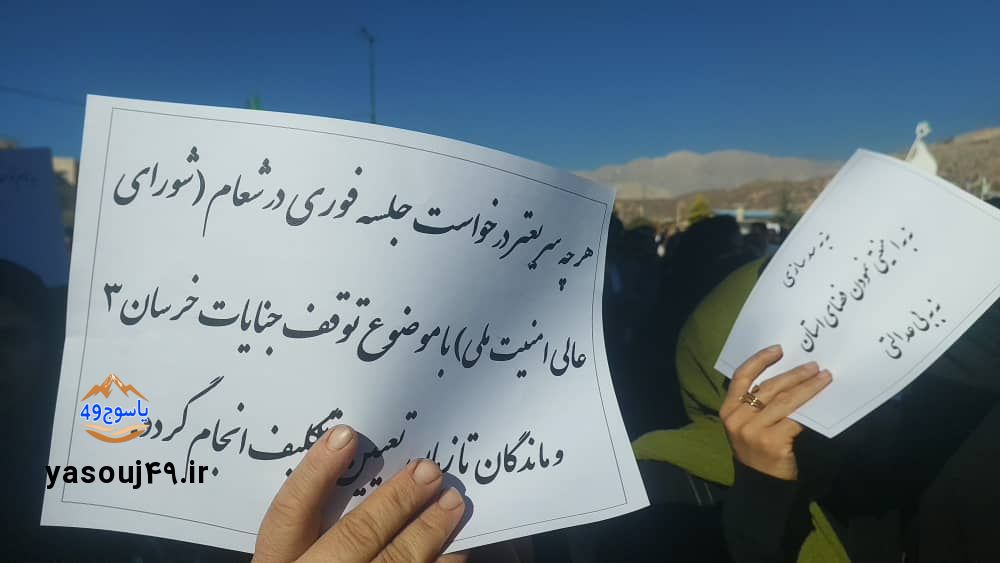 هر چه سریعتر درخواست جلسه فوری در شعام (شورای
عالی امنیت ملی) با موضوع توقف جنایات خرسان ۳
و ماندگان تا زمان تعیین تکلیف انجام گردد.
نه به سدسازی
نه به امنیتی نمودن فضای استان
نه به بی عدالتی
یاسوج49
yasouj۴۹.ir